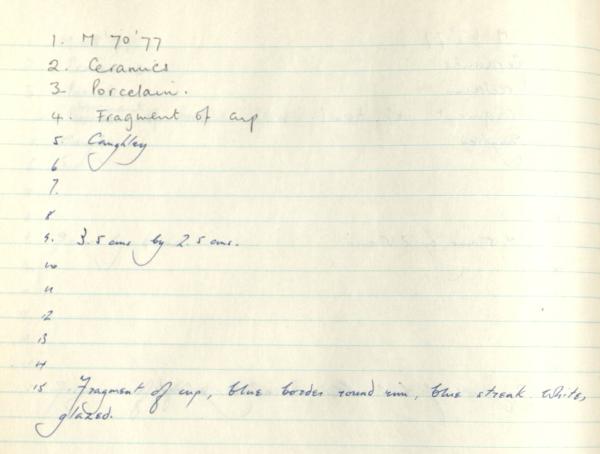 1. M 70'77
2. Ceramics
3. Porcelain.
4. Fragment of cup
5. Caughley
6
7.
8
9. 3.5 cms by 2.5 cms.
10
11
12
13
14
15 Fragment of cup, blue border round rim, blue streak. White,
glazed.